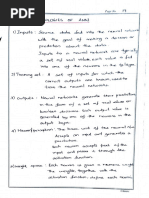 1) Inputs :- Source data fed into the neural network
with the goal of making a decision or
prediction about the data.
Inputs to a neural network are typically
a set of real values each value is fed
into one of the neurons in the input
2) Training set :- A set of inputs for which
the correct outputs are known used to
train the neural network
3) Outputs :- Neural networks generate their predictions
in the form of a set of real values or
boolean decisions. Each output value is
generated by one of the neurons in the
output layer
4) Neuron/perceptron :- The basic unit of the neural network
accepts an input and generates a
prediction.
Each neuron accepts part of the
input and passes it through the
activation function
5) Weight space :- Each neuron is given a numeric weight
the weights together with the
activation function define each neuron